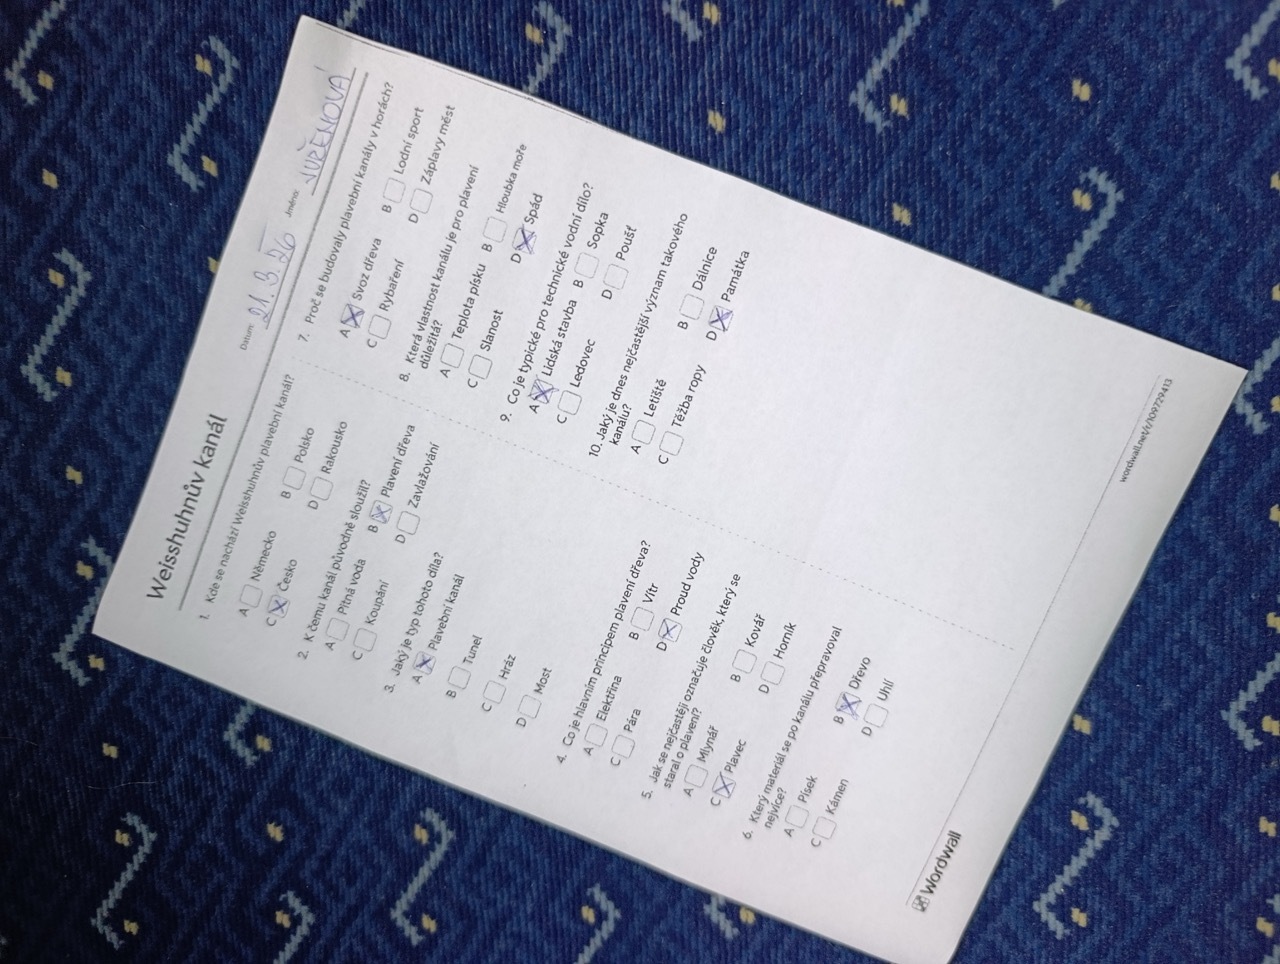 Weisshuhnův kanál
Datum: 21.3.26 Jméno:
1. Kde se nachází Weisshuhnův plavební kanál?
A Německo B Polsko
C Česko D Rakousko
2. K čemu kanál původně sloužil?
A Pitná voda B Plavení dřeva
C Koupání D Zavlažování
3. Jaký je typ tohoto díla?
A Plavební kanál
B Tunel
C Hráz
D Most
4. Co je hlavním principem plavení dřeva?
A Elektřina B Vítr
C Pára D Proud vody
5. Jak se nejčastěji označuje člověk, který se
staral o plavení?
A Mlynář B Kovář
C Plavec D Horník
6. Který materiál se po kanálu přepravoval
nejvíce?
A Písek B Dřevo
C Kámen D Uhlí
7. Proč se budovaly plavební kanály v horách?
A Svoz dřeva B Lodní sport
C Rybaření D Záplavy měst
8. Která vlastnost kanálu je pro plavení
důležitá?
A Teplota písku B Hloubka moře
C Slanost D Spád
9. Co je typické pro technické vodní dílo?
A Lidská stavba B Sopka
C Ledovec D Poušť
10. Jaký je dnes nejčastější význam takového
kanálu?
A Letiště B Dálnice
C Těžba ropy D Památka
Wordwall
wordwall.net/r/109729413